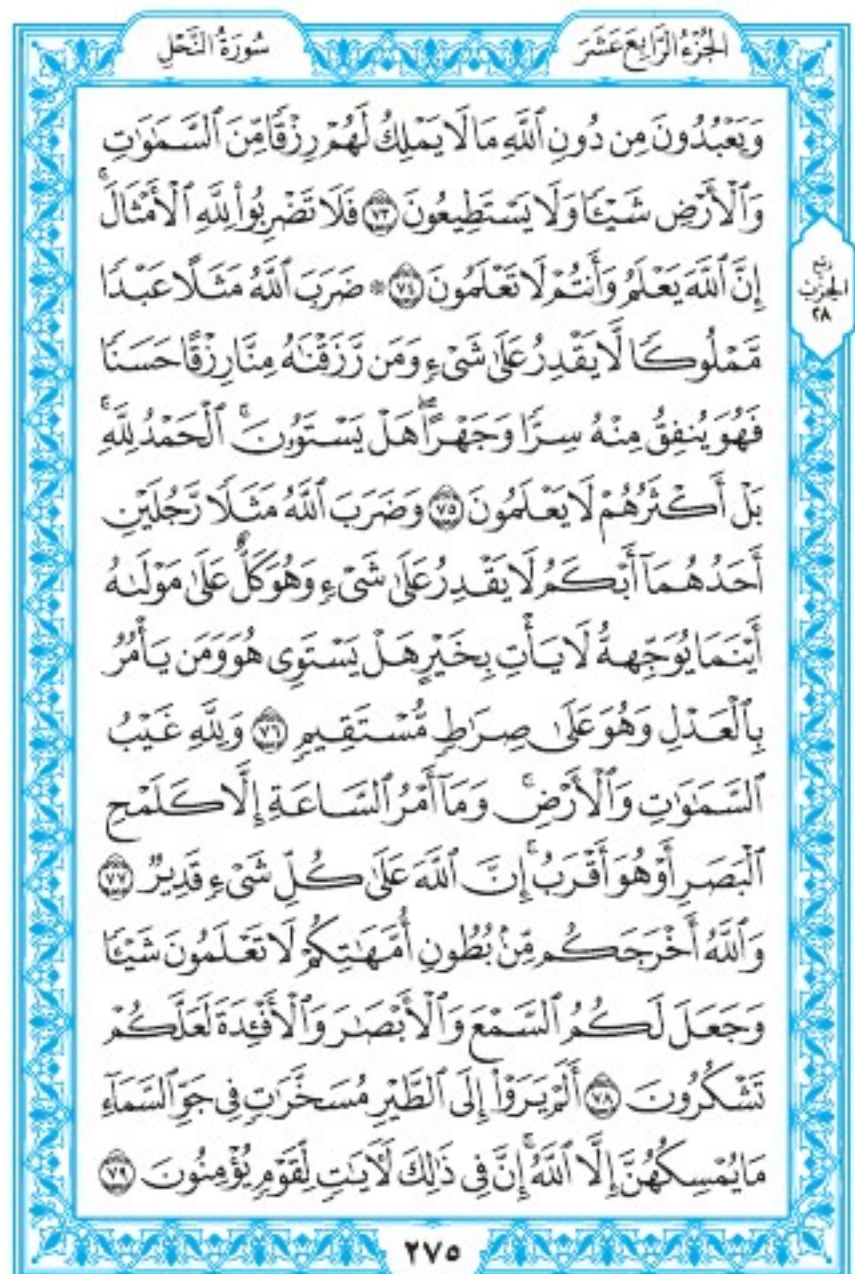 الجُزْءُ الرَّابِعَ عَشَرَ
سُورَةُ النَّحْلِ
وَيَعْبُدُونَ مِن دُونِ ٱللَّهِ مَا لَا يَمْلِكُ لَهُمْ رِزْقًا مِّنَ ٱلسَّمَٰوَٰتِ
وَٱلْأَرْضِ شَيْـًٔا وَلَا يَسْتَطِيعُونَ ٧٣ فَلَا تَضْرِبُوا۟ لِلَّهِ ٱلْأَمْثَالَ ۚ
إِنَّ ٱللَّهَ يَعْلَمُ وَأَنتُمْ لَا تَعْلَمُونَ ٧٤ ۞ ضَرَبَ ٱللَّهُ مَثَلًا عَبْدًا
مَّمْلُوكًا لَّا يَقْدِرُ عَلَىٰ شَىْءٍ وَمَن رَّزَقْنَٰهُ مِنَّا رِزْقًا حَسَنًا
فَهُوَ يُنفِقُ مِنْهُ سِرًّا وَجَهْرًا ۖ هَلْ يَسْتَوُۥنَ ۚ ٱلْحَمْدُ لِلَّهِ ۚ
بَلْ أَكْثَرُهُمْ لَا يَعْلَمُونَ ٧٥ وَضَرَبَ ٱللَّهُ مَثَلًا رَّجُلَيْنِ
أَحَدُهُمَآ أَبْكَمُ لَا يَقْدِرُ عَلَىٰ شَىْءٍ وَهُوَ كَلٌّ عَلَىٰ مَوْلَىٰهُ
أَيْنَمَا يُوَجِّههُّ لَا يَأْتِ بِخَيْرٍ هَلْ يَسْتَوِى هُوَ وَمَن يَأْمُرُ
بِٱلْعَدْلِ وَهُوَ عَلَىٰ صِرَٰطٍ مُّسْتَقِيمٍ ٧٦ وَلِلَّهِ غَيْبُ
ٱلسَّمَٰوَٰتِ وَٱلْأَرْضِ ۚ وَمَآ أَمْرُ ٱلسَّاعَةِ إِلَّا كَلَمْحِ
ٱلْبَصَرِ أَوْ هُوَ أَقْرَبُ ۚ إِنَّ ٱللَّهَ عَلَىٰ كُلِّ شَىْءٍ قَدِيرٌ ٧٧
وَٱللَّهُ أَخْرَجَكُم مِّنۢ بُطُونِ أُمَّهَٰتِكُمْ لَا تَعْلَمُونَ شَيْـًٔا
وَجَعَلَ لَكُمُ ٱلسَّمْعَ وَٱلْأَبْصَٰرَ وَٱلْأَفْـِٔدَةَ لَعَلَّكُمْ
تَشْكُرُونَ ٧٨ أَلَمْ يَرَوْا۟ إِلَى ٱلطَّيْرِ مُسَخَّرَٰتٍ فِى جَوِّ ٱلسَّمَآءِ
مَا يُمْسِكُهُنَّ إِلَّا ٱللَّهُ ۗ إِنَّ فِى ذَٰلِكَ لَءَايَٰتٍ لِّقَوْمٍ يُؤْمِنُونَ ٧٩
ربع
الحزب
٢٨
٢٧٥